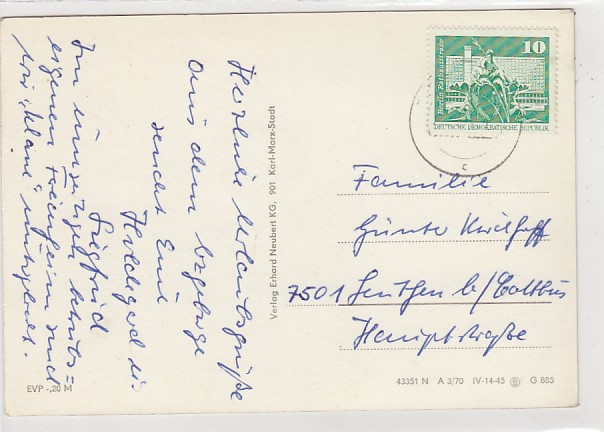 Herzliche Urlaubsgrüße
aus dem Erzgebirge
sendet Euch
Hildegard u.
Siegfried
Im
eigenen Ferienheim sind
wir
Verlag Erhard Neubert KG, 901 Karl-Marx-Stadt
EVP -,20 M
10
Berlin Rathausstraße
DEUTSCHE DEMOKRATISCHE REPUBLIK
c
Familie
Günter Kirchhoff
7501 Leuthen b/Cottbus
Hauptstraße
43351 N A 3/70 IV-14-45 G 885